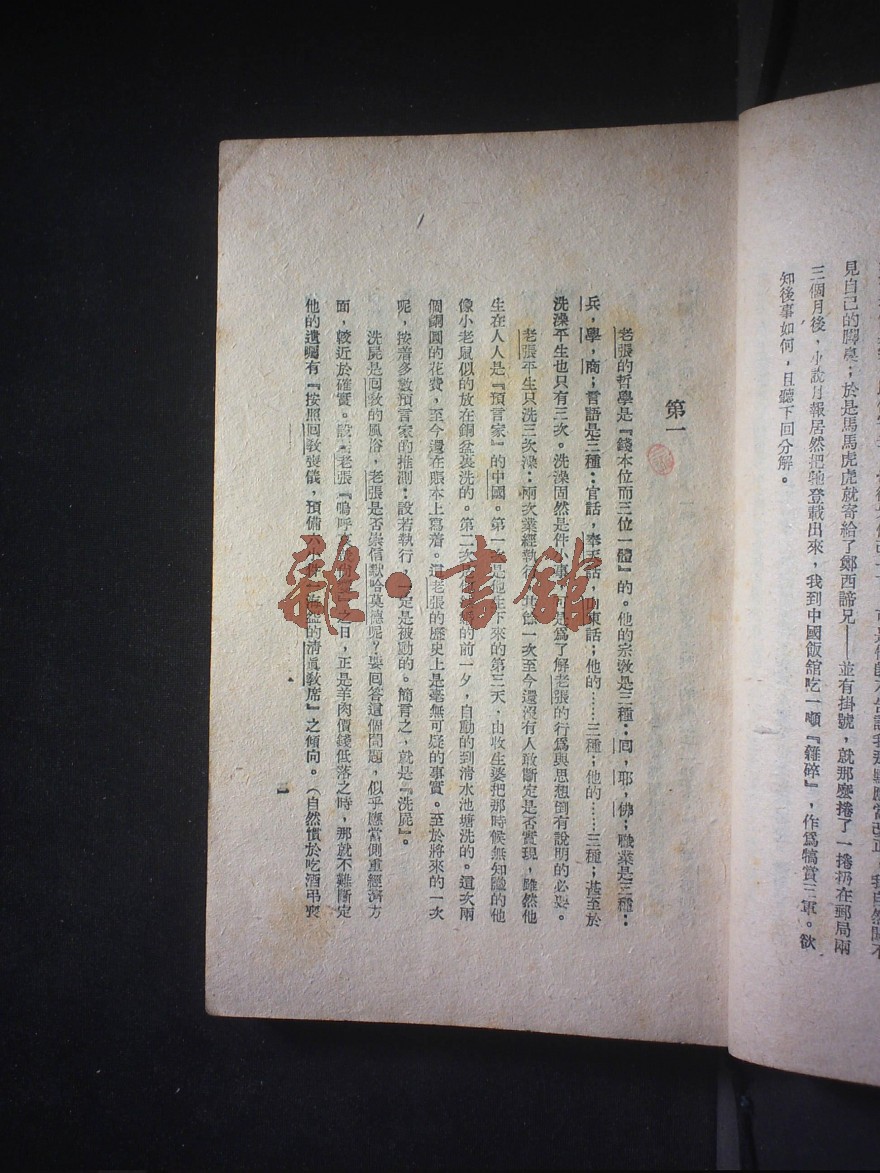 見自己的
於是馬馬虎虎就寄給了鄭西諦兄——並有掛號，就那麼捲了一捲扔在郵局兩
三個月後，小說月報居然把牠登載出來，我到中國飯館吃一頓『雜碎』，作爲犒賞三軍。欲
知後事如何，且聽下回分解。
第一
老張的哲學是『錢本位而三位一體』的。他的宗教是三種：回，耶，佛；職業是三種：
兵，學，商；言語是三種：官話，奉天話，山東話；他的……三種；他的……三種；甚至於
洗澡平生也只有三次。洗澡固然是件小事，可是爲了解老張的行爲與思想倒有說明的必要。
老張平生只洗三次澡：兩次業經執行，其餘一次至今還沒有人敢斷定是否實現，雖然他
生在人人是『預言家』的中國。第一次是他生下來的第三天，由收生婆把那時候無知識的他
像小老鼠似的放在銅盆裏洗的。第二次是
的前一夕，自動的到清水池塘洗的。這次兩
個銅圓的花費，至今還在賬本上寫着。這老張的歷史上是毫無可疑的事實。至於將來的一次
呢，按着多數預言家的推測：設若執行，一定是被動的。簡言之，就是『洗屍』。
洗屍是回教的風俗，老張是否崇信默哈莫德呢？要回答這個問題，似乎應當側重經濟方
面，較近於確實。設若老張『嗚呼哀哉尚饗』之日，正是羊肉價錢低落之時，那就不難斷定
他的遺囑有『按照回教喪儀，預備六小件一海碗的清眞教席』之傾向。（自然慣於吃酒弔喪
一
雜·書館